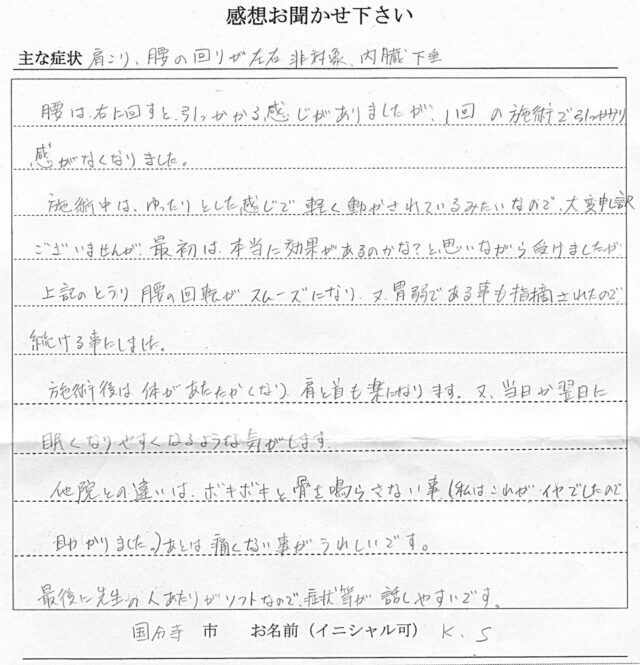 感想お聞かせ下さい
主な症状 肩こり、腰の回りが左右非対象、内臓下垂
腰は右に回すと、引っかかる感じがありましたが、1回の施術で引っかかり
感がなくなりました。
施術中は、ゆったりとした感じで軽く動かされているみたいなので、大変申し訳
ございませんが、最初は、本当に効果があるのかな?と思いながら受けましたが
上記のとうり腰の回転がスムーズになり、又、胃弱である事も指摘されたので
続ける事にしました。
施術後は体があたたかくなり、肩と首も楽になります。又、当日か翌日に
眠くなりやすくなるような気がします。
他院との違いは、ボキボキと骨を鳴らさない事、(私はこれがイヤでしたので
助かりました。)あとは痛くない事がうれしいです。
最後に先生の人あたりがソフトなので、症状等が話しやすいです。
国分寺 市 お名前(イニシャル可) K.S